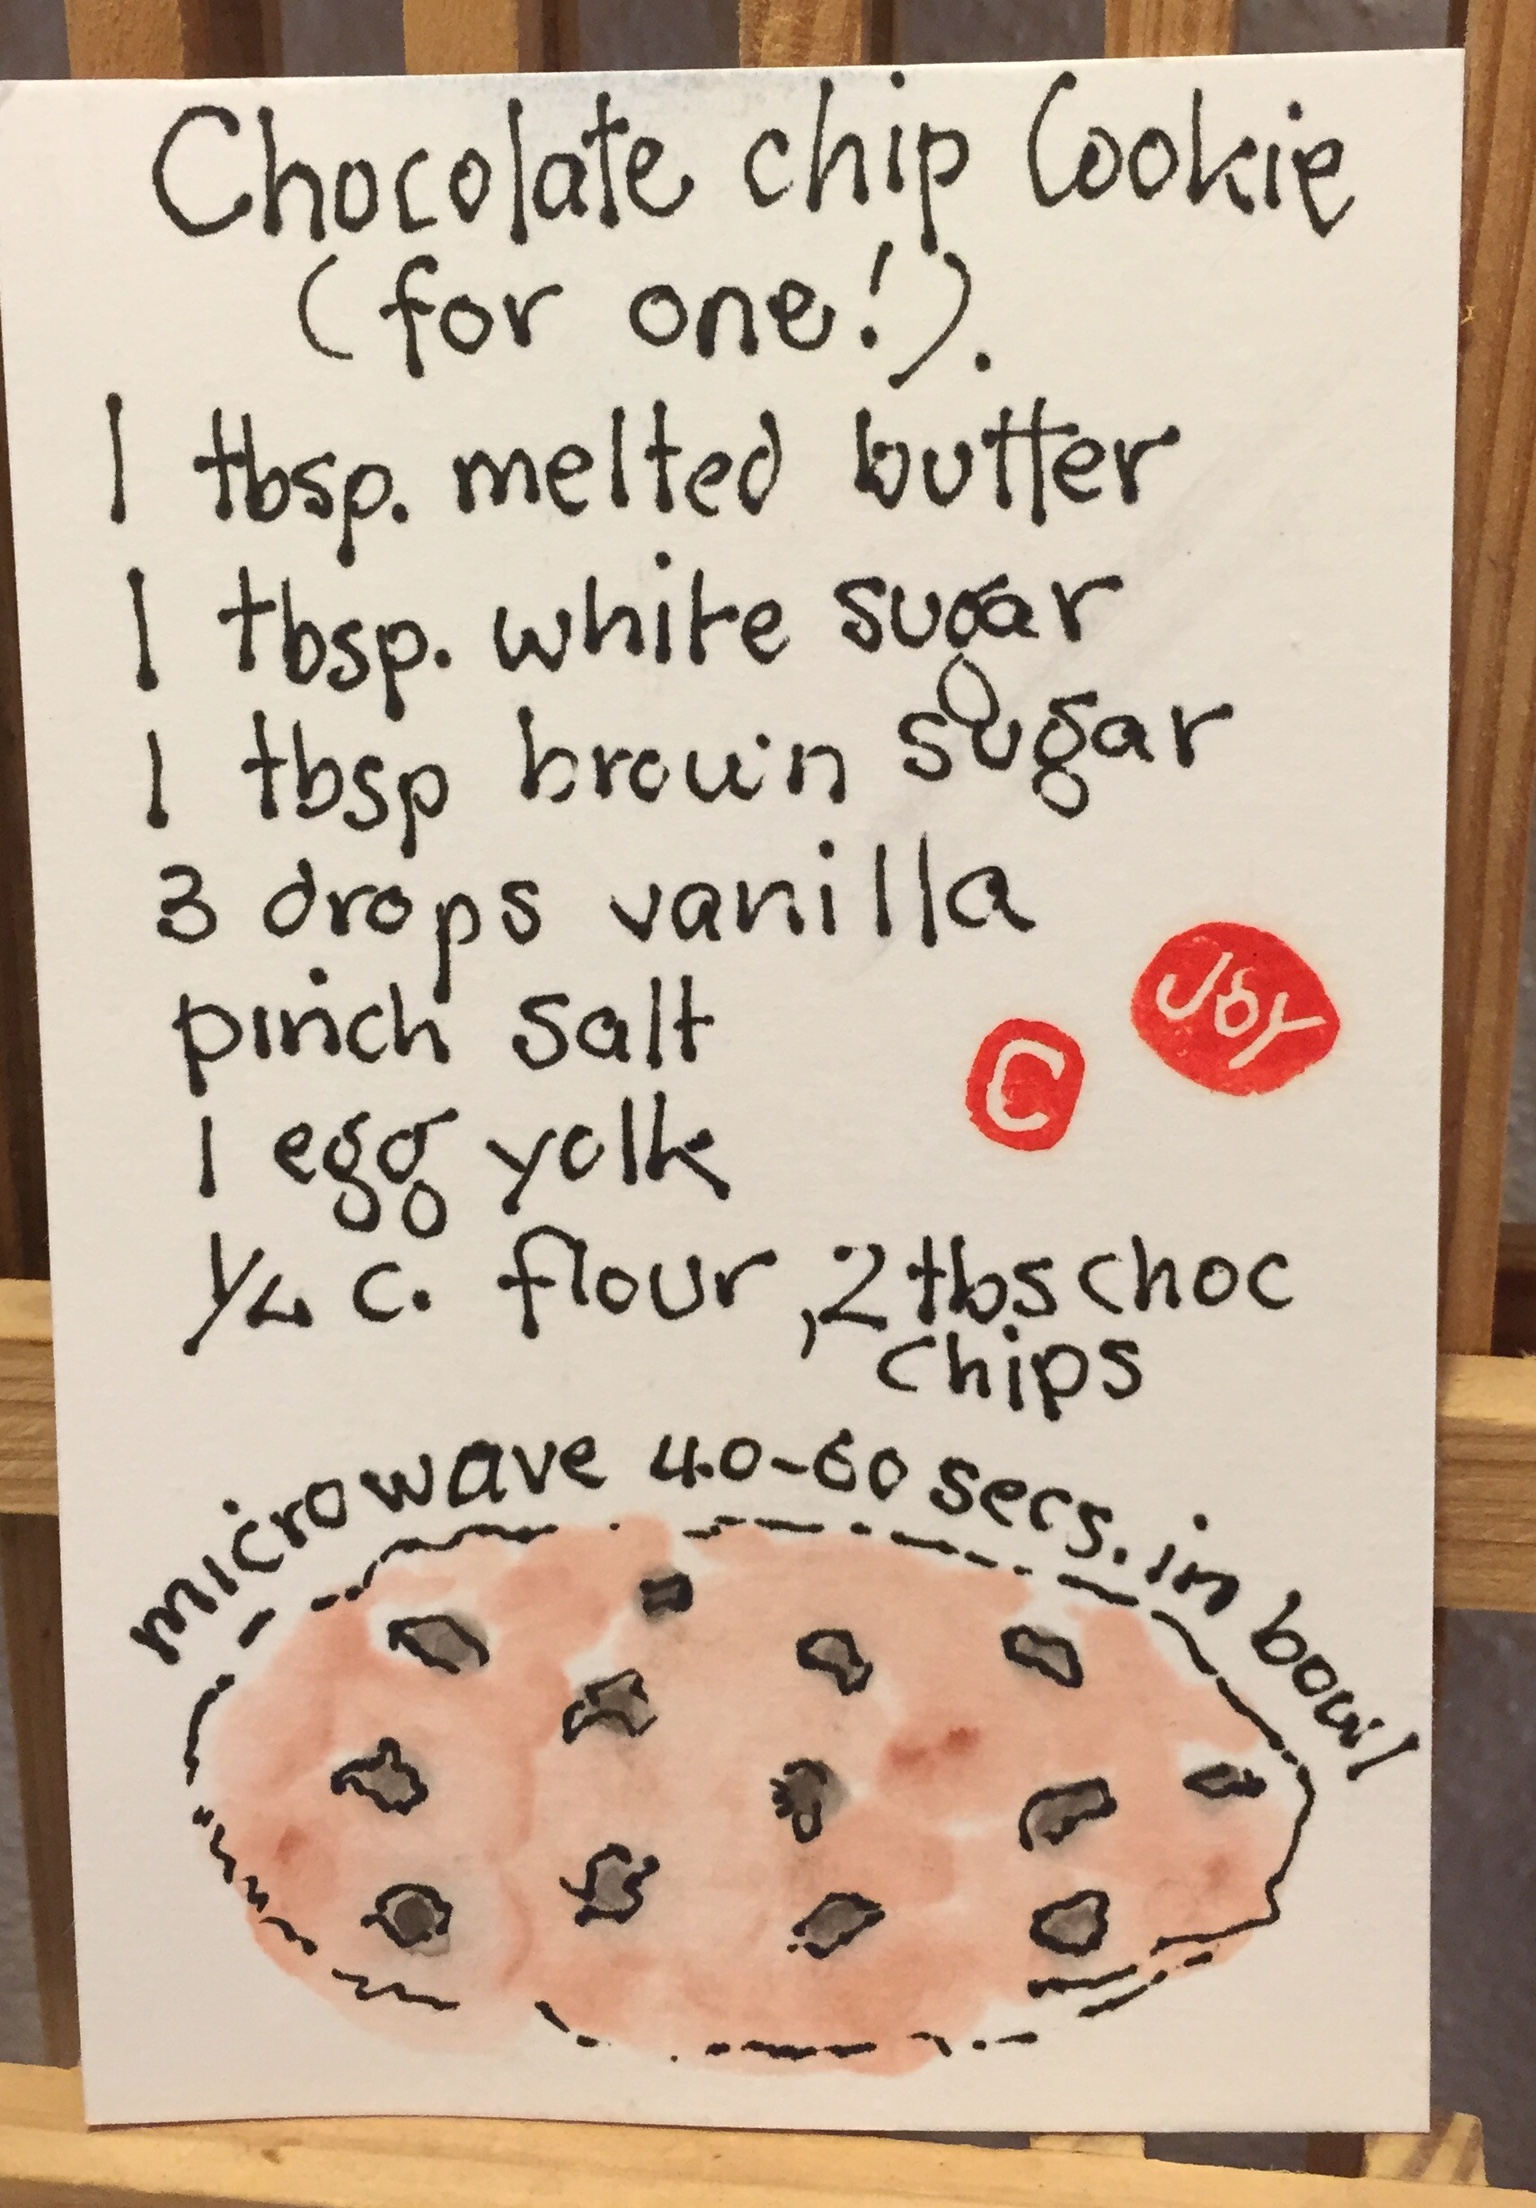 Chocolate chip Cookie
(for one!).
1 tbsp. melted butter
1 tbsp. white sugar
1 tbsp brown sugar
3 drops vanilla
pinch salt
1 egg yolk
1/4 c. flour, 2 tbs choc
chips
JOY
C
microwave 40-60 secs. in bowl